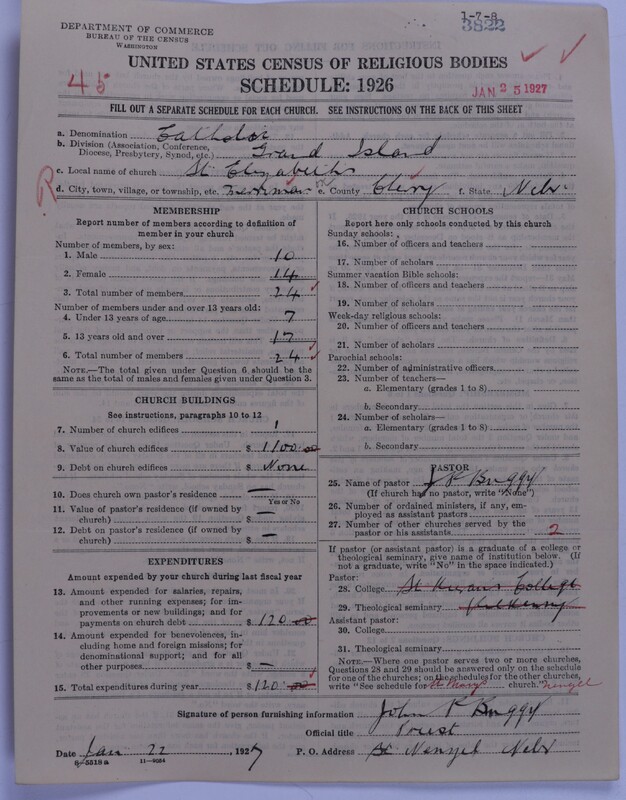 1-7-8
3822
DEPARTMENT OF COMMERCE
BUREAU OF THE CENSUS
WASHINGTON
UNITED STATES CENSUS OF RELIGIOUS BODIES
SCHEDULE: 1926
45
JAN 25 1927
FILL OUT A SEPARATE SCHEDULE FOR EACH CHURCH. SEE INSTRUCTIONS ON THE BACK OF THIS SHEET
a. Denomination Catholic
b. Division (Association, Conference, Diocese, Presbytery, Synod, etc.) Grand Island
c. Local name of church St. Elizabeths
R
d. City, town, village, or township, etc. e. County Chery f. State Nebr
MEMBERSHIP
Report number of members according to definition of member in your church
Number of members, by sex:
1. Male 10
2. Female 14
3. Total number of members 24
Number of members under and over 13 years old:
4. Under 13 years of age 7
5. 13 years old and over 17
6. Total number of members 24
NOTE.—The total given under Question 6 should be the same as the total of males and females given under Question 3.
CHURCH BUILDINGS
See instructions, paragraphs 10 to 12
7. Number of church edifices 1
8. Value of church edifices $ 1100 00
9. Debt on church edifices $ None
10. Does church own pastor's residence —
Yes or No
11. Value of pastor's residence (if owned by church) $ —
12. Debt on pastor's residence (if owned by church) $ —
EXPENDITURES
Amount expended by your church during last fiscal year
13. Amount expended for salaries, repairs, and other running expenses; for improvements or new buildings; and for payments on church debt $ 120 00
14. Amount expended for benevolences, including home and foreign missions; for denominational support; and for all other purposes $ —
15. Total expenditures during year $ 120 00
CHURCH SCHOOLS
Report here only schools conducted by this church
Sunday schools:
16. Number of officers and teachers
17. Number of scholars
Summer vacation Bible schools:
18. Number of officers and teachers
19. Number of scholars
Week-day religious schools:
20. Number of officers and teachers
21. Number of scholars
Parochial schools:
22. Number of administrative officers
23. Number of teachers—
a. Elementary (grades 1 to 8)
b. Secondary
24. Number of scholars—
a. Elementary (grades 1 to 8)
b. Secondary
PASTOR
25. Name of pastor J P Buggy
(If church had no pastor, write "None")
26. Number of ordained ministers, if any, employed as assistant pastors
27. Number of other churches served by the pastor or his assistants 2
If pastor (or assistant pastor) is a graduate of a college or theological seminary, give name of institution below. (If not a graduate, write "No" in the space indicated.)
Pastor:
28. College St Kierans College
29. Theological seminary Kilkenny
Assistant pastor:
30. College
31. Theological seminary
NOTE.—Where one pastor serves two or more churches, Questions 28 and 29 should be answered only on the schedule for one of the churches; on the schedules for the other churches, write "See schedule for St Mary church." Nenzel
Signature of person furnishing information John P Buggy
Official title Priest
Date Jan 22, 1927 P. O. Address Nenzel Nebr
8-5518a 11-9564